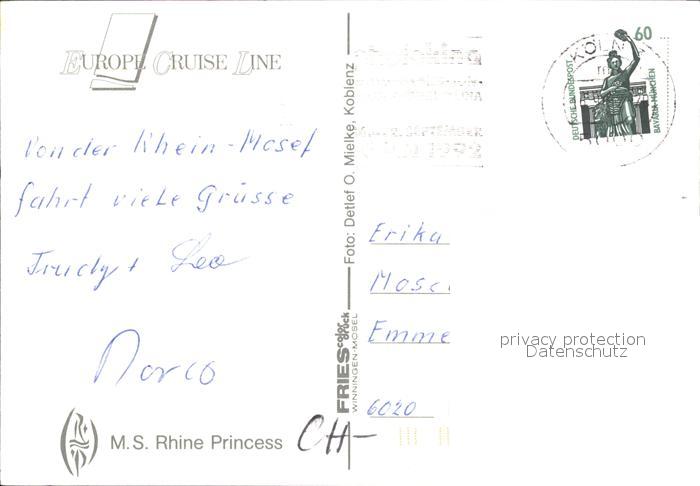 EUROPE CRUISE LINE
von der Rhein-Mosel
fahrt viele Grüsse
Trudy + Leo
Marco
M.S. Rhine Princess
CH-
Foto: Detlef O. Mielke, Koblenz
FRIES color druck
WINNINGEN-MOSEL
KÖLN
60
DEUTSCHE BUNDESPOST
BAVARIA MÜNCHEN
Erika
Emme
6020
privacy protection
Datenschutz